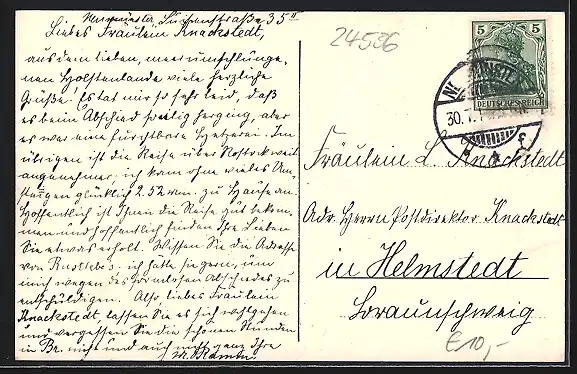 Neumünster, Südenstraße 35 II
Liebes Fräulein Knackstedt,
aus dem lieben, meerumschlunge-
nen Holstenlande viele herzliche
Grüße! Es tat mir so sehr leid, daß
es beim Abschied so eilig herging, aber
es war eine furchtbare Hetzerei. Im
übrigen ist die Reise über Rostock weit
angenehmer, ich kam ohne vieles Um-
steigen glücklich 2.52 nm. zu Hause an.
Hoffentlich ist Ihnen die Reise gut bekom-
men und hoffentlich finden Ihre Lieben
Sie etwas erholt. Wissen Sie die Adresse
von ich hätte sie gern, um
mich wegen des formlosen Abschiedes zu
entschuldigen. Also, liebes Fräulein
Knackstedt, lassen Sie es sich wohlgehen
und vergessen Sie die schönen Stunden
in Br. nicht und auch nicht ganz Ihre
24536
5 5
DEUTSCHES REICH
30.7.1
Fräulein L. Knackstedt
Adr. Herrn Postdirektor Knackstedt
in Helmstedt
Braunschweig
€10,-